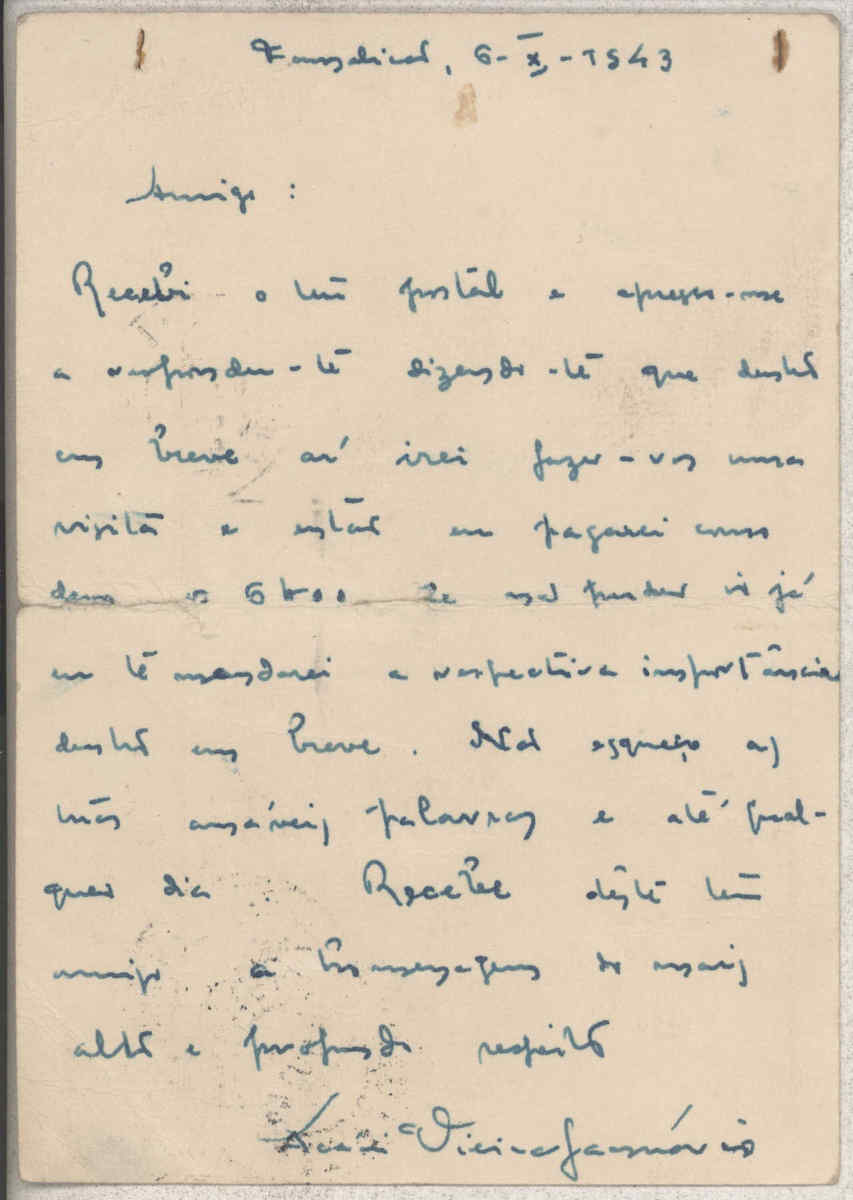 Famalicão, 6-X-1943
Amigo :
Recebi o teu postal e apresso-me
a responder-te dizendo-te que dentro
em breve aí irei fazer-vos uma
visita e então eu pagarei como
dono os 6$00 Se não puder ir já
eu te mandarei a respectiva importância
dentro em breve . Não esqueço as
tuas amáveis palavras e até qual-
quer dia . Recebe dêste teu
amigo a homenagem do mais
alto e profundo respeito
Vieira Januário